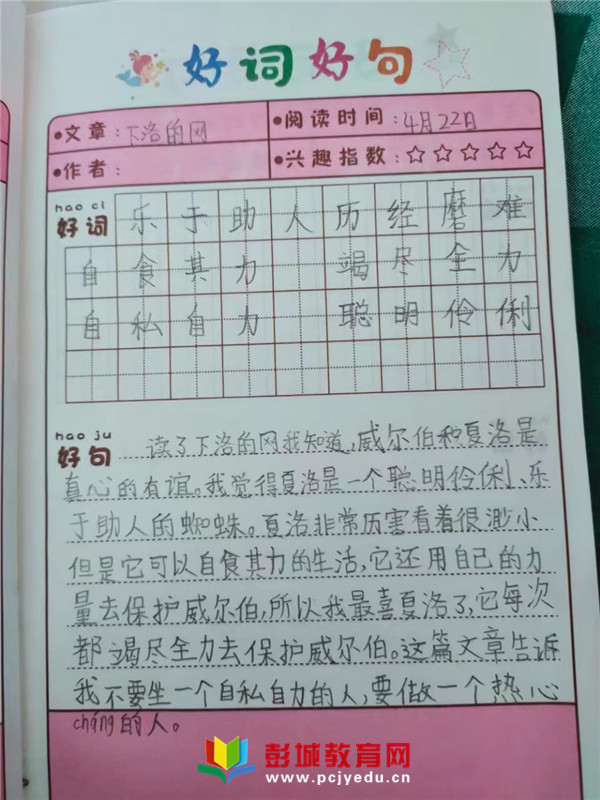 好词好句
文章：下洛的网 阅读时间：4月22日
作者： 兴趣指数：☆☆☆☆☆
hao ci
好词 乐于助人历经磨难
自食其力 竭尽全力
自私自力 聪明伶俐
hao ju
好句 读了下洛的网我知道,威尔伯和夏洛是
真心的有谊。我觉得夏洛是一个聪明伶俐、乐
于助人的蜘蛛。夏洛非常厉害看着很渺小
但是它可以自食其力的生活,它还用自己的力
量去保护威尔伯,所以我最喜夏洛了,它每次
都竭尽全力去保护威尔伯。这篇文章告诉
我不要生一个自私自力的人,要做一个热心
cháng的人。
彭城教育网
www.pcjyedu.cn